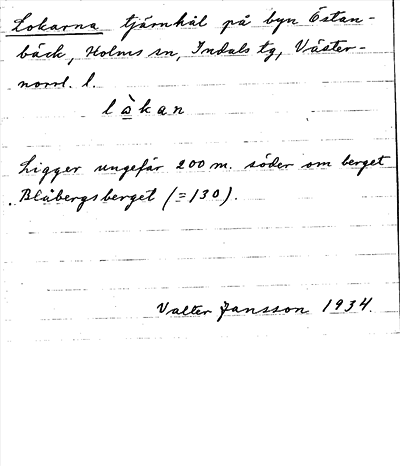 Lokarna tjärnhål på byn Östan-
bäck, Holms sn, Indals tg, Väster-
norrl. l.
lò̲kan
Ligger ungefär 200 m. söder om berget
Blåbergsberget (=130).
Valter Jansson 1934.